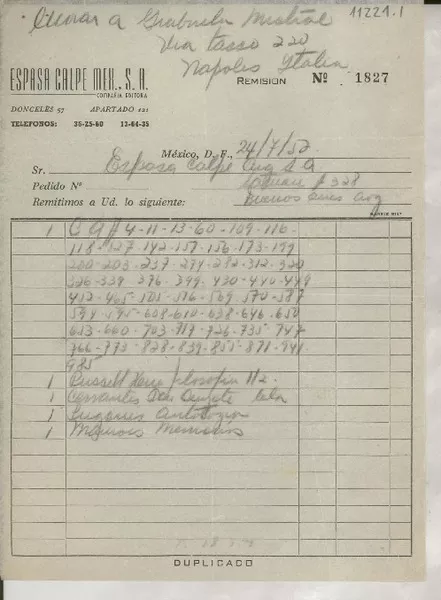 11221.1
Enviar a Gabriela Mistral
Via Tasso 220
Napolis Italia
ESPASA CALPE MEX., S. A.
COMPAÑIA EDITORA
REMISION Nº 1827
DONCELES 57 APARTADO 121
TELEFONOS: 35-25-60 13-64-35
México, D. F., 24/7/52
Sr. Espasa Calpe Arg S A
Pedido Nº 328
Remitimos a Ud. lo siguiente: Buenos Aires Arg
1 C A# 4-11-13-60-109-116-
118-127-142-157-156-173-199
200-203-237-274-282-312-320
326-339 376-399-430-440-449
412-465-505-516-569 570-587
594-595-608-610-638-646-650
653-660-703-717-726-735-747
766-773-828-839-855-871-941
985
1 Russell filosofia
1 Cervantes tela
1
1 Memorias
DUPLICADO